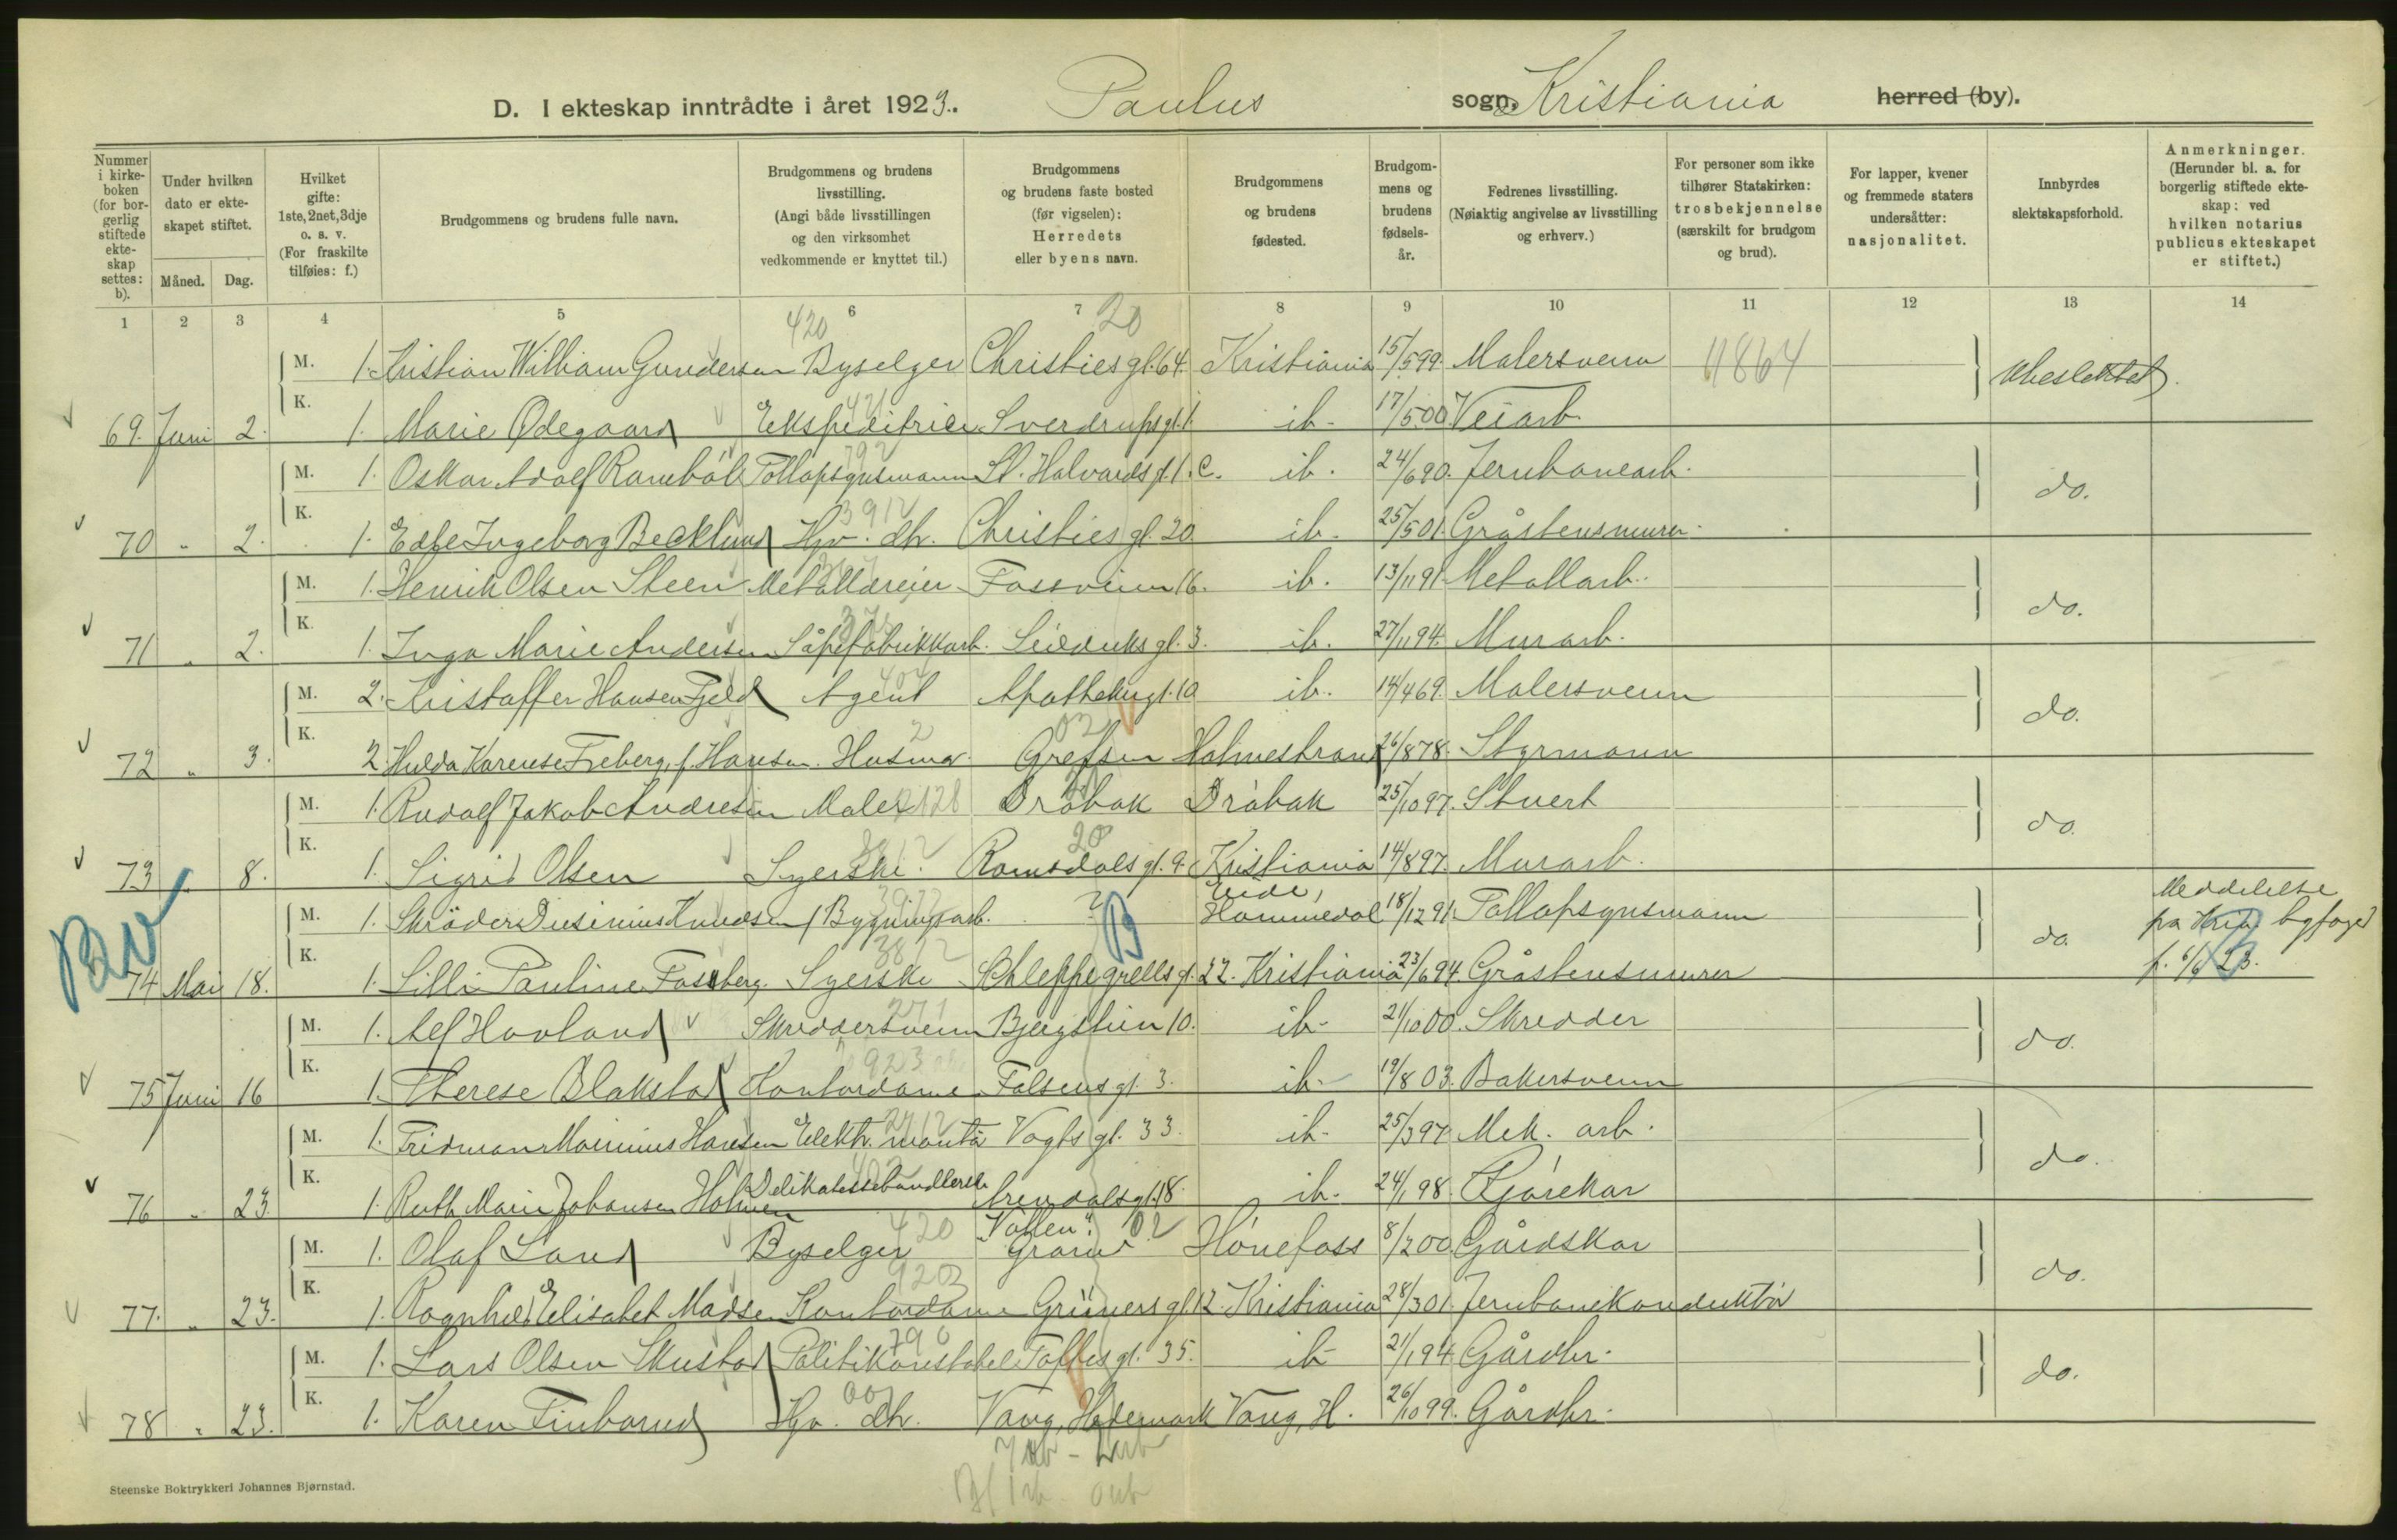 D. I ekteskap inntrådte i året 1923. Paulus sogn, Kristiania herred (by).
Nummer i kirke-boken (for bor-gerlig stiftede ekte-skap settes: b).
Under hvilken dato er ekte-skapet stiftet.
Måned. Dag.
Hvilket gifte: 1ste, 2net, 3dje o. s. v. (For fraskilte tilføies: f.)
Brudgommens og brudens fulle navn.
Brudgommens og brudens livsstilling. (Angi både livsstillingen og den virksomhet vedkommende er knyttet til.)
Brudgommens og brudens faste bosted (før vigselen): Herredets eller byens navn.
Brudgommens og brudens fødested.
Brudgom-mens og brudens fødsels-år.
Fedrenes livsstilling. (Nøiaktig angivelse av livsstilling og erhverv.)
For personer som ikke tilhører Statskirken: trosbekjennelse (særskilt for brudgom og brud).
For lapper, kvener og fremmede staters undersåtter: nasjonalitet.
Innbyrdes slektskapsforhold.
Anmerkninger. (Herunder bl. a. for borgerlig stiftede ekte-skap: ved hvilken notarius publicus ekteskapet er stiftet.)
1 2 3 4 5 6 7 8 9 10 11 12 13 14
420 20
M. 1. Kristian William Gundersen Byselger Christies gt. 64. Kristiania 15/5 99 Malersvenn 11864 Ubeslektet.
69. Juni 2. K. 1. Marie Ødegaard Ekspeditrice Sverdrups gt. 1. ib. 17/5 00 Veiarb.
M. 1. Oskar Adolf Ramebøl Tollopsynsmann St. Halvards gt. 1. c. ib. 24/6 90. Jernbanearb. do.
70 " 2. K. 1. Edle Ingeborg Becklund Hjv. dtr. Christies gt. 20 ib. 25/5 01. Gråstensmurer.
M. 1. Henrik Olsen Steen Metalldreier Fossveien 16. ib. 13/11 91 Metallarb. do.
71 " 2. K. 1. Inga Marie Andersen Såpefabrikkarb. Seilduks gt. 3. ib. 27/11 94. Murarb.
M. 2. Kristoffer Hansen Fjeld Agent Apothekergt. 10 ib. 14/4 69. Malersvenn do.
72 " 3. K. 2. Hulda Karense Freberg, f. Hansen. Husmor Grefsen Holmestrand 26/8 78. Styrmann
M. 1. Rudolf Jakob Andresen Maler Drøbak Drøbak 25/10 97. Stuert do.
73 " 8. K. 1. Sigrid Olsen Syerske. Romsdals gt. 9. Kristiania 14/8 97. Murarb.
M. 1. Skrøder Dusinius Knudsen Bygningsarb. ? Eide, Hommedal 18/12 91. Tollopsynsmann do. Meddelelse fra Kr.a byfoged
74 Mai 18. K. 1. Lilli Pauline Fossberg. Syerske Schleppegrells gt. 22. Kristiania 23/6 94. Gråstensmurer f. 6/6 23.
M. 1. Alf Hovland Skreddersvenn Bjergstien 10. ib. 21/10 00. Skredder do.
75 Juni 16 K. 1. Therese Blakstad Kontordame Falsens gt. 3. ib. 19/8 03. Bakersvenn
M. 1. Fridman Marinius Hansen Elektr. montør Vogts gt. 33. ib. 25/3 97. Mek. arb. do.
76 " 23. K. 1. Ruth Marie Johansen Holmen Delikatessehandlerske Arendalsgt. 18. ib. 24/1 98. Kjørekar
M. 1. Olaf Land Byselger "Vollen" Gran Hønefoss 8/2 00. Gårdskar do.
77. " 23. K. 1. Ragnhild Elisabet Madsen Kontordame Grüners gt 12. Kristiania 28/3 01. Jernbanekonduktør
M. 1. Lars Olsen Skustad Politikonstabel Toftes gt. 35. ib. 21/1 94 Gårdbr. do.
78 " 23. K. 1. Karen Finborud Hjv. dtr. Vang, Hedemark Vang, H. 26/10 99. Gårdbr.
Steenske Boktrykkeri Johannes Bjørnstad.